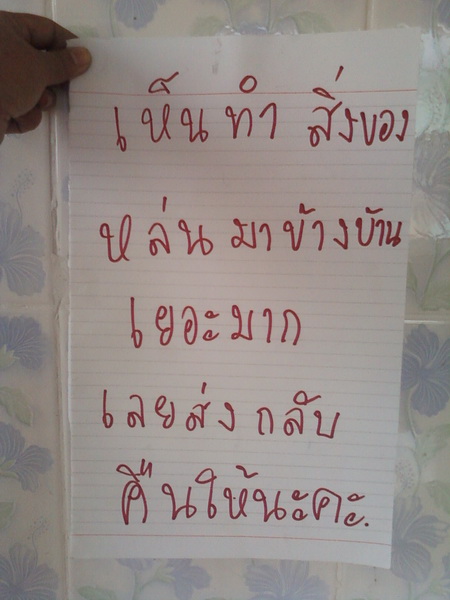 เห็นทำ สิ่งของ
หล่นมาข้างบ้าน
เยอะมาก
เลยส่งกลับ
คืนให้นะคะ.